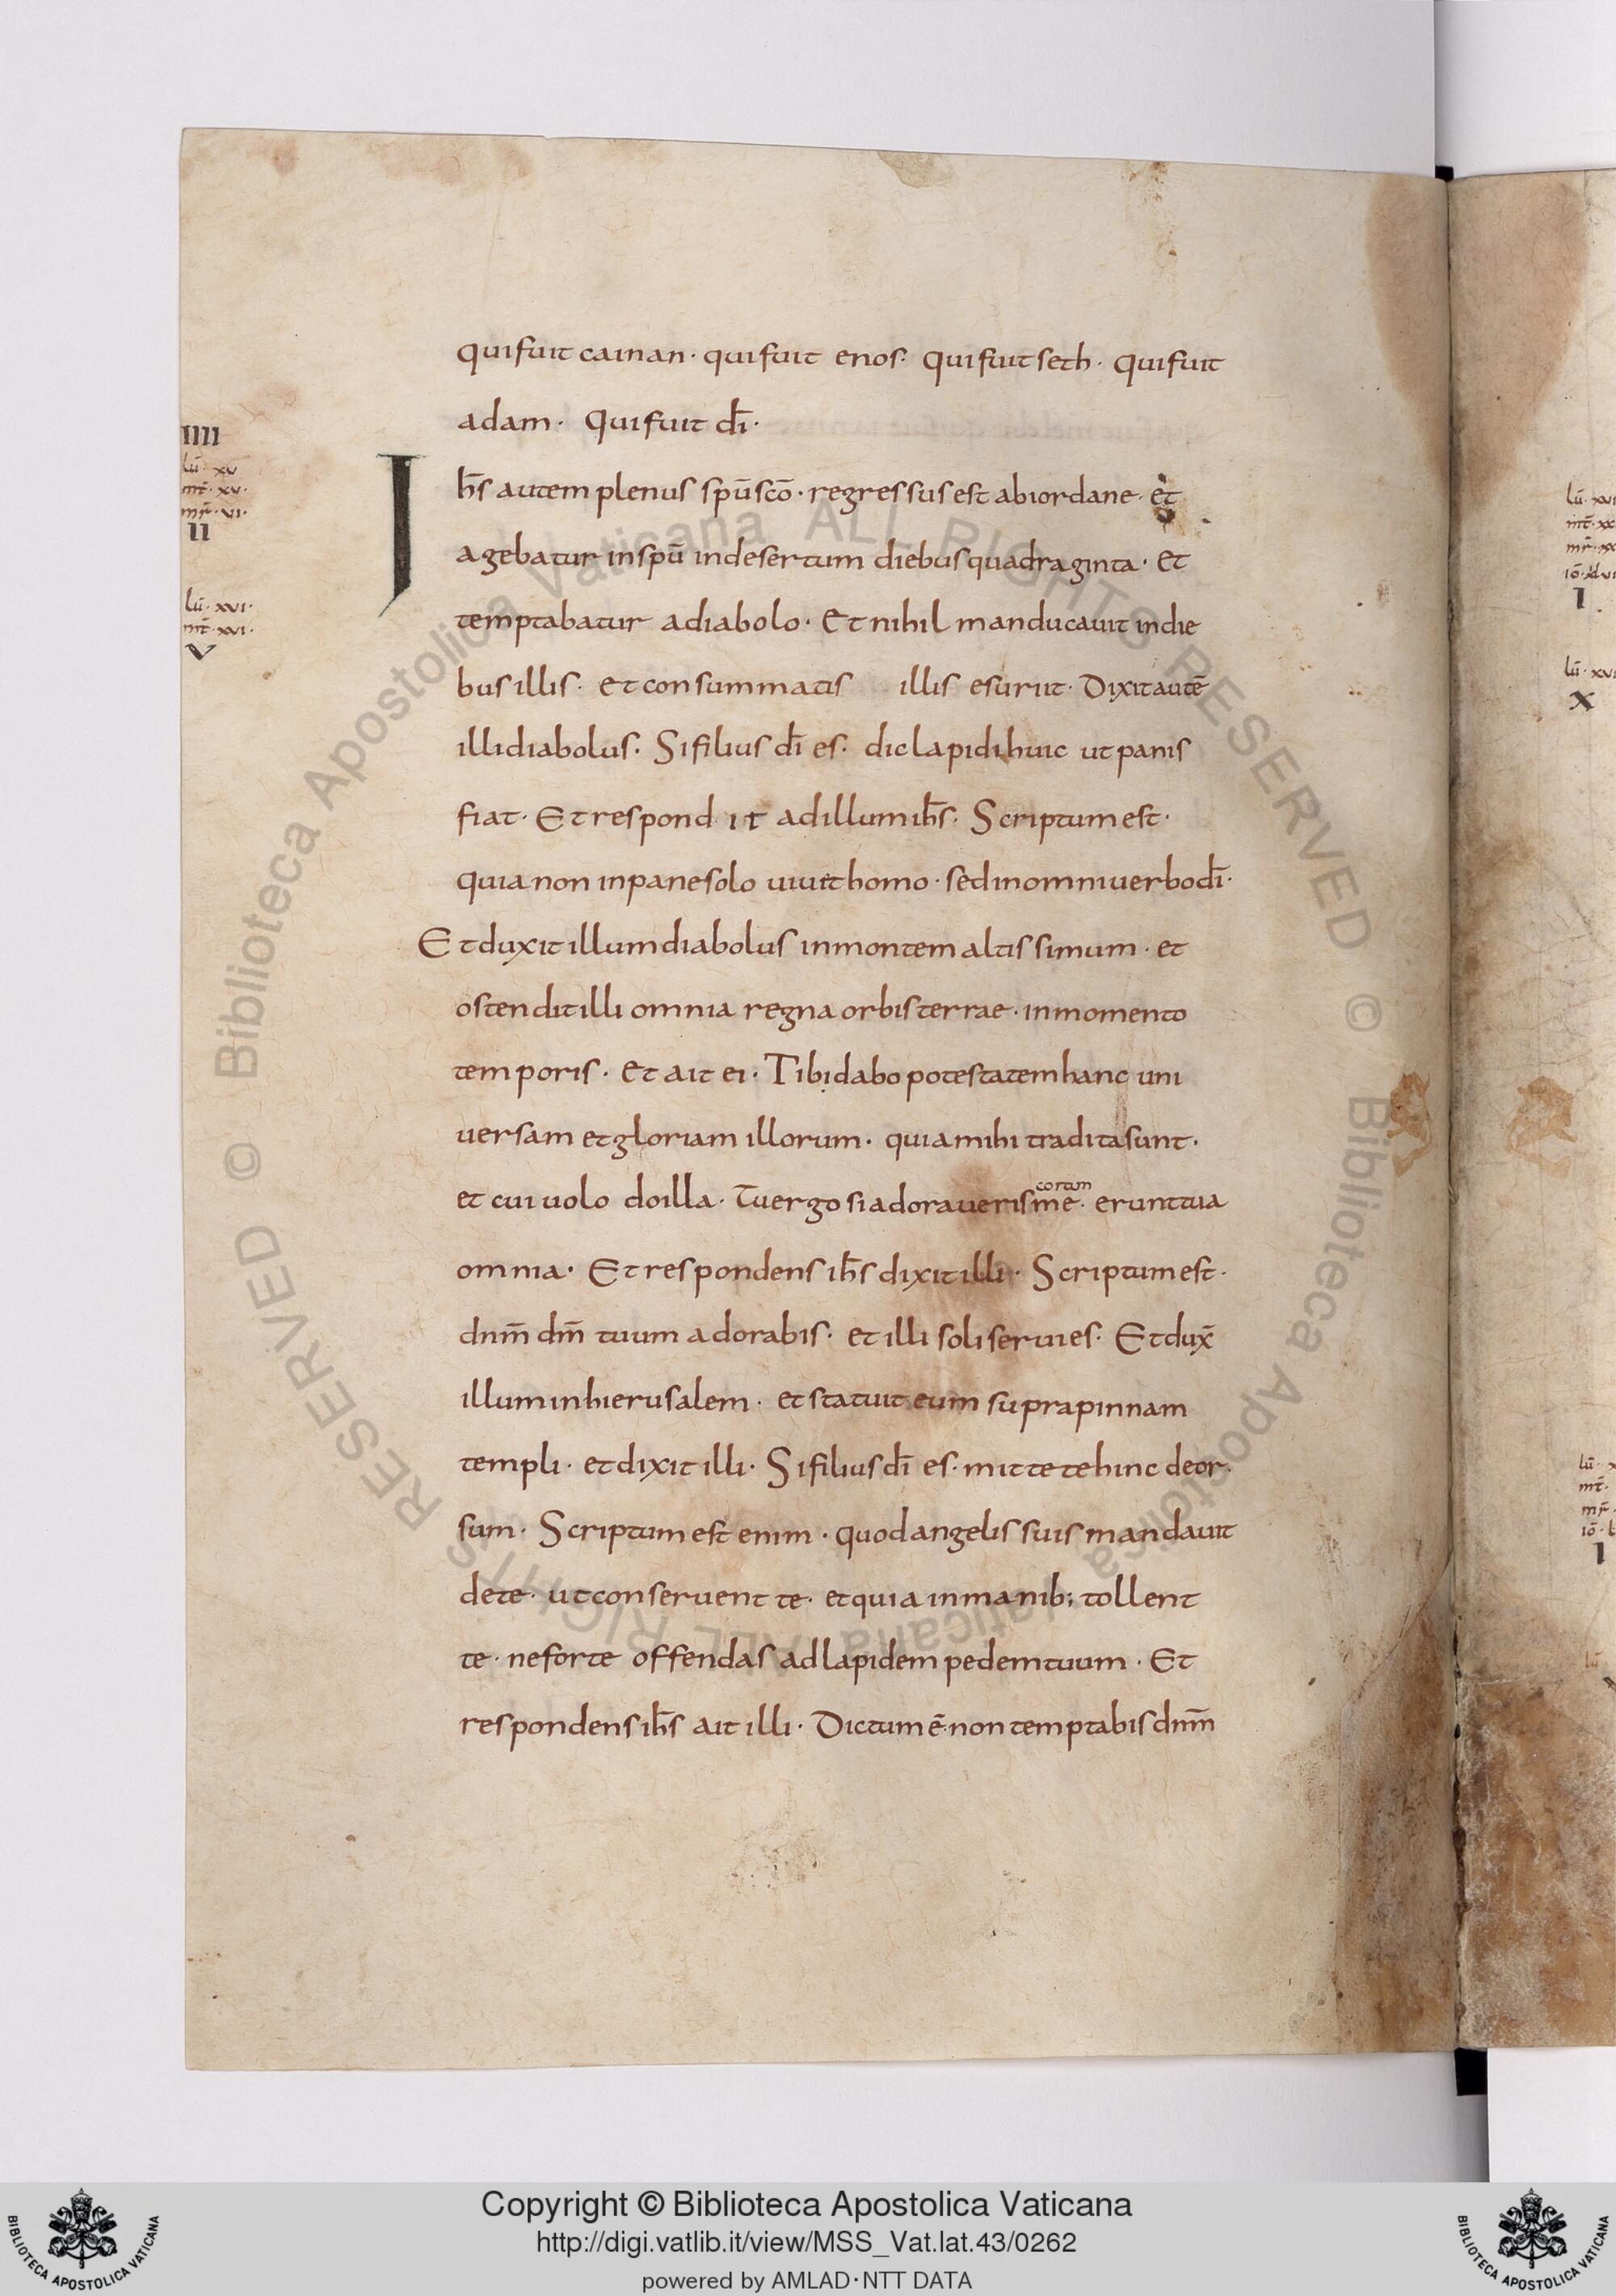 qui fuit cainan · qui fuit enos · qui fuit seth · qui fuit
adam · Qui fuit dī ·
IIII
lū · xv
mt̄ · xv ·
mr̄ · vi ·
II
I
hs̄ autem plenus spū scō · regressus est ab iordane · et
agebatur in spū in desertum diebus quadraginta · et
lū · xvi ·
mt̄ · xvi ·
V
temptabatur a diabolo · Et nihil manducauit in die
bus illis · et consummatis illis esuriit · Dixit autē
illi diabolus · Si filius dī es · dic lapidi huic ut panis
fiat · Et respondit ad illum ihs̄ · Scriptum est ·
quia non in pane solo uiuit homo · sed in omni uerbo dī ·
Et duxit illum diabolus in montem altissimum · et
ostendit illi omnia regna orbis terrae · in momento
temporis · et ait ei · Tibi dabo potestatem hanc uni
uersam et gloriam illorum · quia mihi tradita sunt ·
et cui uolo do illa · Tu ergo si adoraueris coram me · erunt tua
omnia · Et respondens ihs̄ dixit illi · Scriptum est ·
dnm̄ dm̄ tuum adorabis · et illi soli seruies · Et dux̄
illum in hierusalem · et statuit eum supra pinnam
templi · et dixit illi · Si filius dī es · mitte te hinc deor
sum · Scriptum est enim · quod angelis suis mandauit
de te · ut conseruent te · et quia in manib; tollent
te · ne forte offendas ad lapidem pedem tuum · Et
respondens ihs̄ ait illi · Dictum ē · non temptabis dnm̄
I
X
I
© Biblioteca Apostolica Vaticana ALL RIGHTS RESERVED © Biblioteca Apostolica Vaticana ALL RIGHTS RESERVED
Copyright © Biblioteca Apostolica Vaticana
http://digi.vatlib.it/view/MSS_Vat.lat.43/0262
powered by AMLAD·NTT DATA
BIBLIOTECA APOSTOLICA VATICANA
BIBLIOTECA APOSTOLICA VATICANA